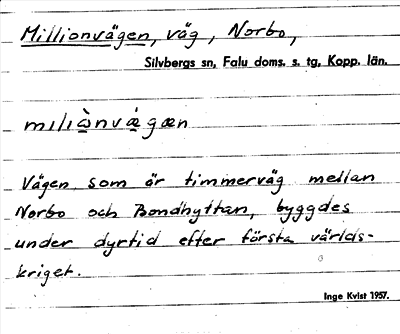 Millionvägen, väg, Norbo,
Silvbergs sn, Falu doms. s. tg, Kopp. län.
miliὼnvæ̀gæn
Vägen som är timmerväg mellan
Norbo och Bondhyttan, byggdes
under dyrtid efter första världs-
kriget.
Inge Kvist 1957.